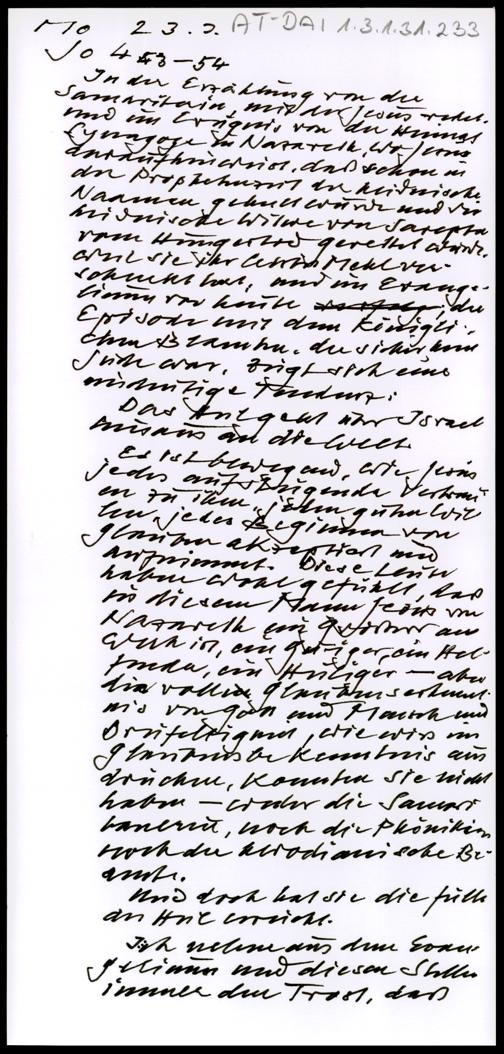 Mo 23.3. AT-DAI 1.3.1.31.233
Jo 4 43–54
In der Erzählung von der
Samariterin, mit der Jesus redet
und im Ereignis von der
Synagoge in Nazareth, wo Jesus
darauf hinweist, daß schon in
der Prophetenzeit der heidnische
Naaman geheilt wurde und die
heidnische Witwe von Sarepta
vom Hungertod gerettet wurde,
weil sie ihr letztes Mehl ver-
schenkt hat, und im Evange-
lium von heute, der
Episode mit dem königli-
chen Beamten, der sicher kein
Jude war, zeigt sich eine
eindeutige Tendenz:
Das Heil geht über Israel
hinaus an die Welt.
Es ist bewegend, wie Jesus
jedes aufsteigende Vertrau-
en zu ihm, jeden guten Wil-
len, jedes Beginnen von
Glauben akzeptiert und
aufnimmt. Diese Leute
haben wohl gefühlt, daß
in diesem Mann Jesus von
Nazareth ein Größerer am
Werk ist, ein Gütiger, ein Hel-
fender, ein Heiliger – aber
die volle Glaubenserkennt-
nis von Gott und Mensch und
Dreifaltigkeit, wie wir's im
Glaubensbekenntnis aus
drücken, konnten sie nicht
haben – weder die Samari
tanerin, noch die Phönikin
noch der herodianische Be-
amte.
Und doch hat sie die Fülle
des Heils erreicht.
Ich nehme aus dem Evan-
gelium und diesen Stellen
immer den Trost, daß